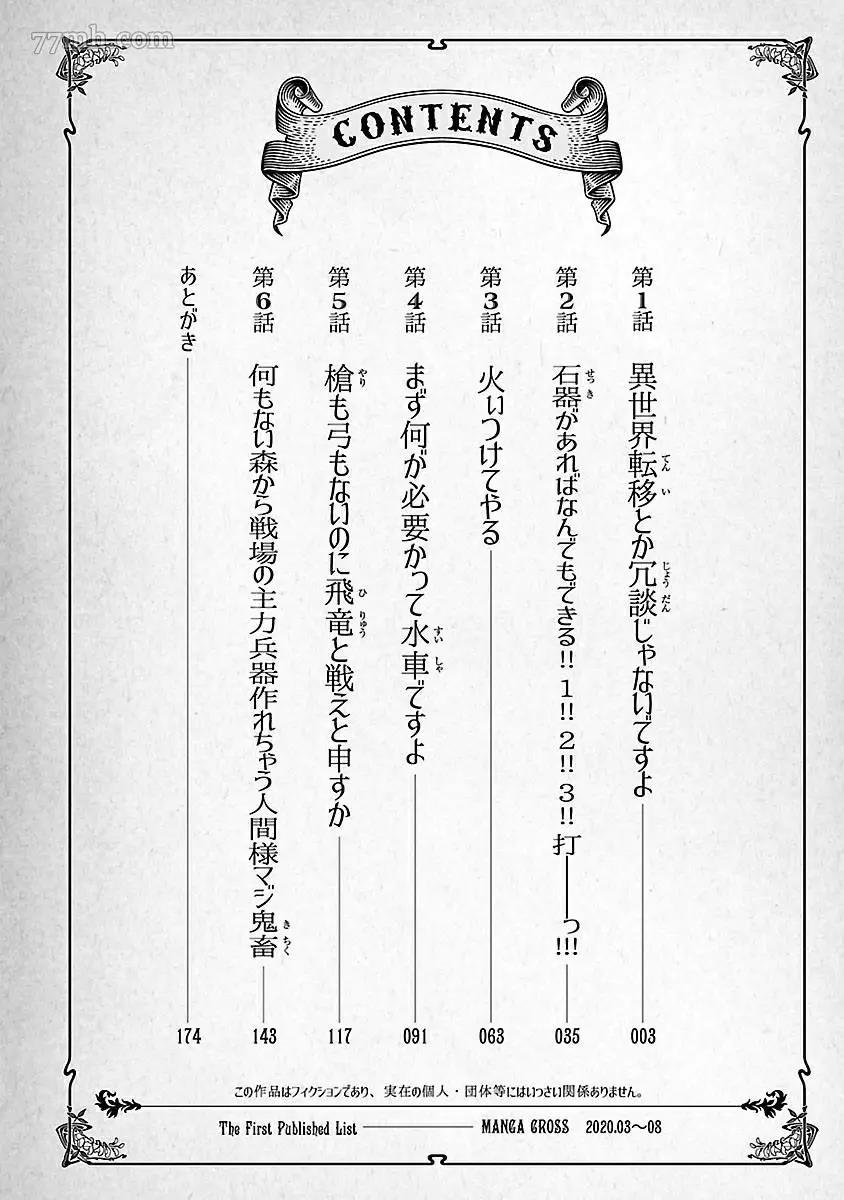 77mh.com
CONTENTS
第1話 異世界転移とか冗談じゃないですよ 003
第2話 石器があればなんでもできる!!1!!2!!3!!打――っ!!! 035
第3話 火ぃつけてやる 063
第4話 まず何が必要かって水車ですよ 091
第5話 槍も弓もないのに飛竜と戦えと申すか 117
第6話 何もない森から戦場の主力兵器作れちゃう人間様マジ鬼畜 143
あとがき 174
この作品はフィクションであり、実在の個人・団体等にはいっさい関係ありません。
The First Published List MANGA CROSS 2020.03〜08